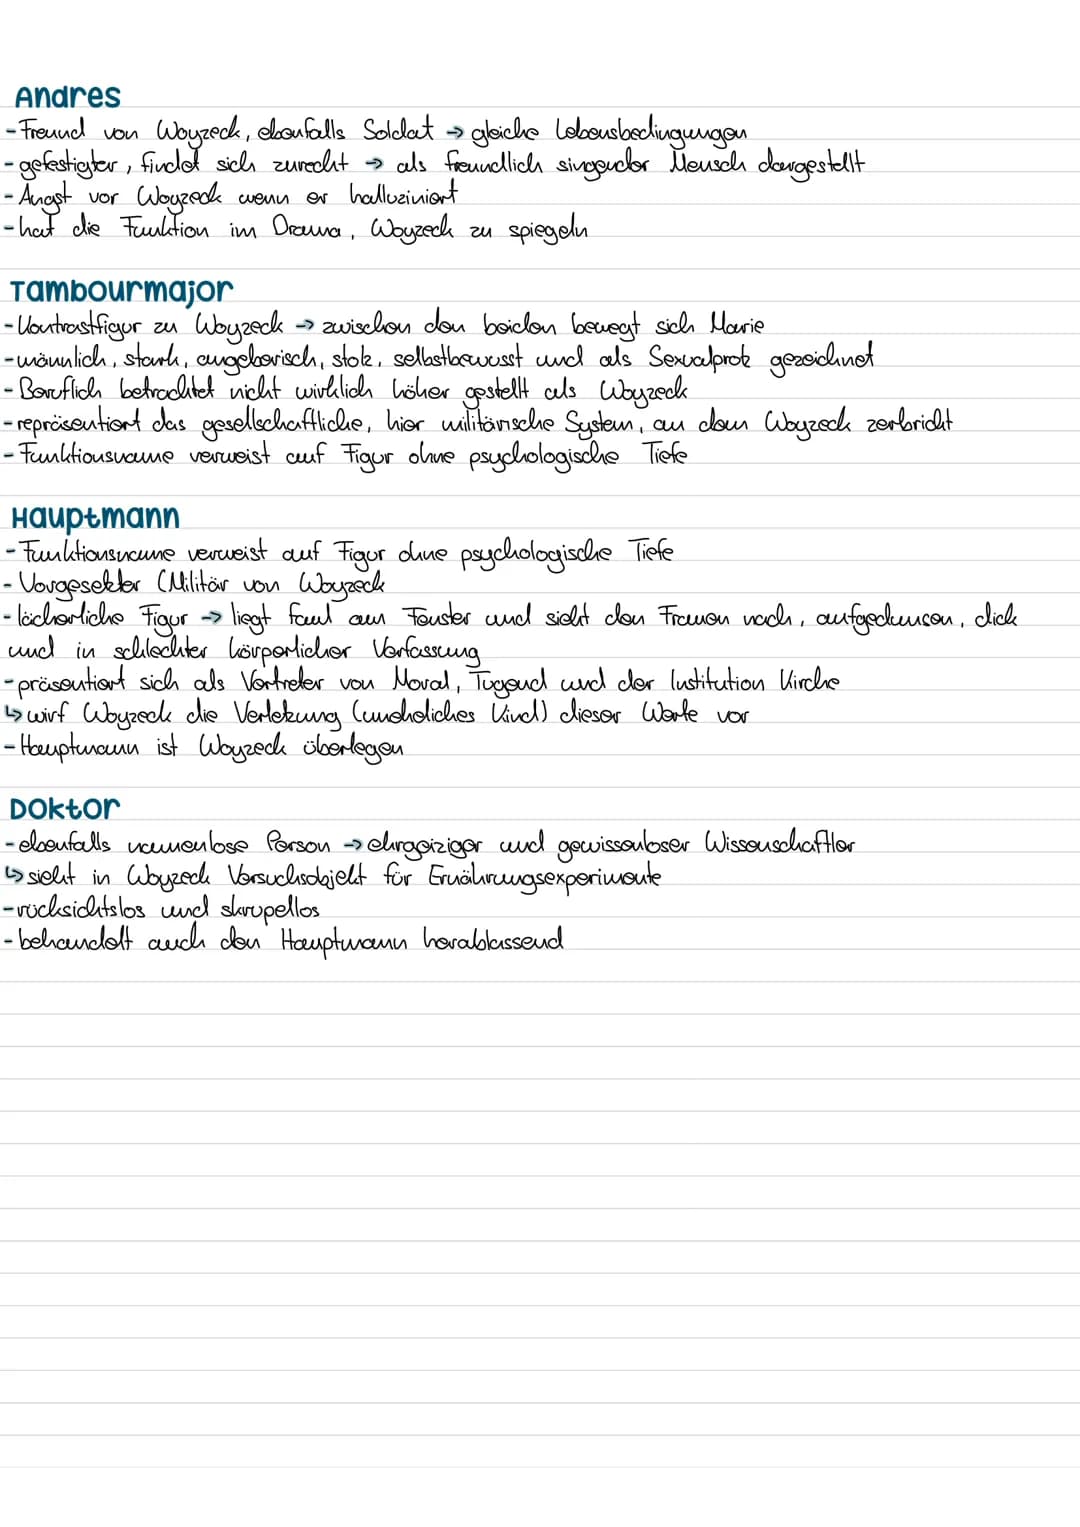 Andres
- Freund von Woyzeck, ebenfalls Soldat → gleiche Lebensbedingungen
- gefestigter, findet sich zurecht → als freundlich singender Mensch dargestellt
- Angst vor Woyzeck wenn er halluziniert
- hat die Funktion im Drama, Woyzeck zu spiegeln
Tambourmajor
- Kontrastfigur zu Woyzeck → zwischen den beiden bewegt sich Marie
- männlich, stark, angeberisch, stolz, selbstbewusst und als Sexualprotz gezeichnet
- Beruflich betrachtet nicht wirklich höher gestellt als Woyzeck
- repräsentiert das gesellschaftliche, hier militärische System, an dem Woyzeck zerbricht
- Funktionsname verweist auf Figur ohne psychologische Tiefe
Hauptmann
- Funktionsname verweist auf Figur ohne psychologische Tiefe
- Vorgesetzter (Militär von Woyzeck
- lächerliche Figur → liegt faul am Fenster und sieht den Frauen nach, aufgedunsen, dick
und in schlechter körperlicher Verfassung
- präsentiert sich als Vertreter von Moral, Tugend und der Institution Kirche
↳ wirf Woyzeck die Verletzung (uneheliches Kind) dieser Werte vor
- Hauptmann ist Woyzeck überlegen
Doktor
- ebenfalls namenlose Person → ehrgeiziger und gewissenloser Wissenschaftler
↳ sieht in Woyzeck Versuchsobjekt für Ernährungsexperimente
- rücksichtslos und skrupellos
- behandelt auch den Hauptmann herablassend